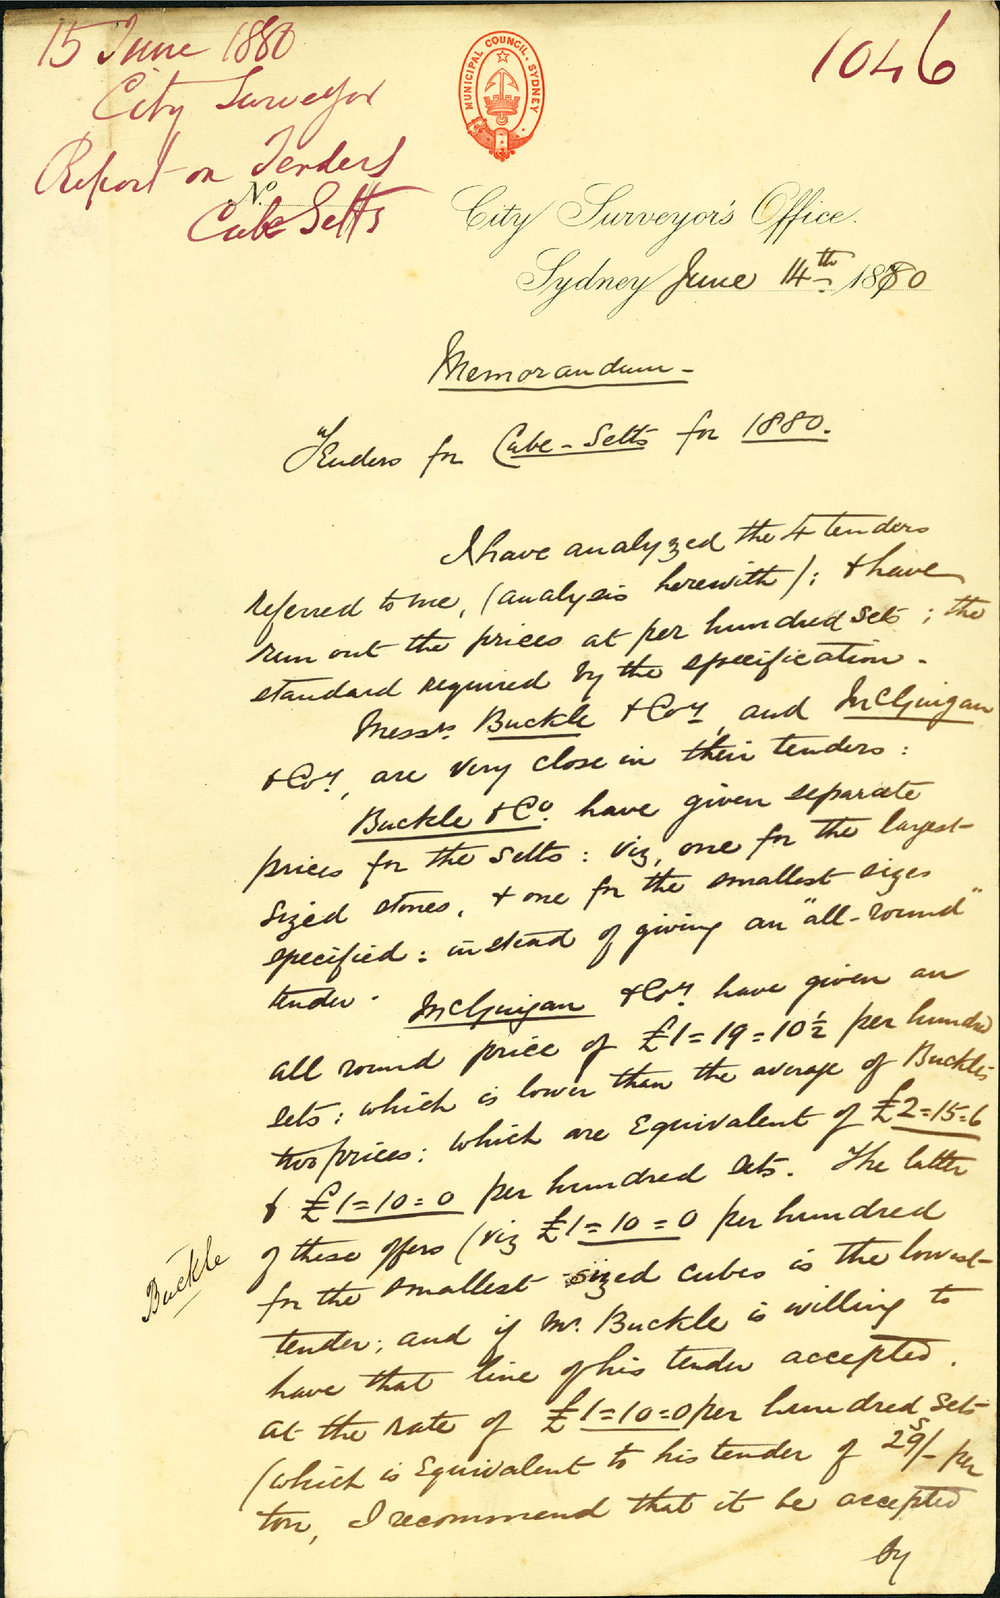 15 June 1880
City Surveyor
Report on Tenders
No.
Cube Setts
1046
MUNICIPAL COUNCIL, SYDNEY
City Surveyor's Office.
Sydney June 14th 1880
Memorandum -
Tenders for Cube-Setts for 1880.
I have analyzed the 4 tenders
referred to me, (analysis herewith); & have
run out the prices at per hundred sets; the
standard required by the specification.
Messrs. Buckle & Coy, and McGuigan
& Coy, are very close in their tenders:
Buckle & Co. have given separate
prices for the setts: viz, one for the largest
sized stones, & one for the smallest sizes
specified: instead of giving an "all-round"
tender. McGuigan & Coy. have given an
all round price of £1=19=10½ per hundred
sets: which is lower than the average of Buckles
two prices: which are equivalent of £2=15=6
& £1=10=0 per hundred sets. The latter
of these offers (viz £1=10=0 per hundred
for the smallest sized cubes is the lowest
tender; and if Mr. Buckle is willing to
have that line of his tender accepted.
Buckle
at the rate of £1=10=0 per hundred sets
(which is equivalent to his tender of 29s/- per
ton, I recommend that it be accepted
by